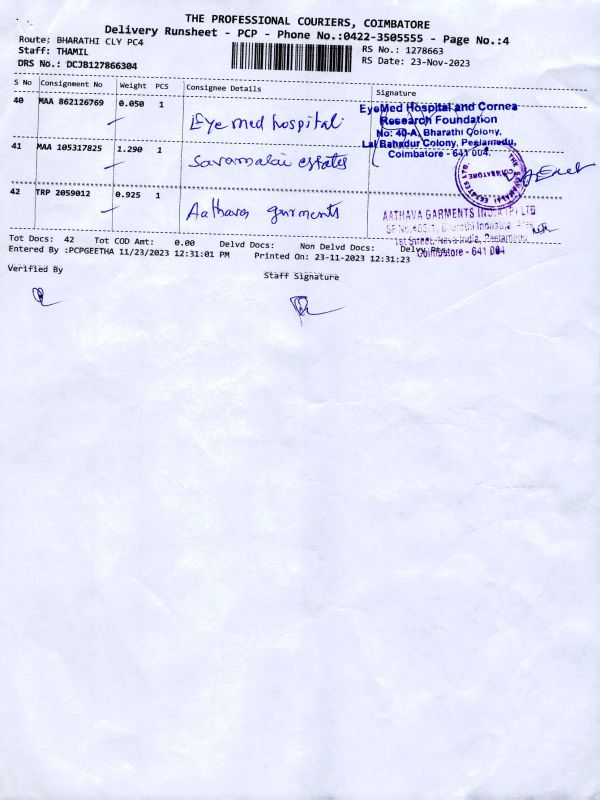 THE PROFESSIONAL COURIERS, COIMBATORE
Delivery Runsheet - PCP - Phone No.:0422-3505555 - Page No.:4
Route: BHARATHI CLY PC4
RS No.: 1278663
Staff: THAMIL
RS Date: 23-Nov-2023
DRS No.: DCJB127866304
S No Consignment No Weight PCS Consignee Details Signature
40 MAA 862126769 0.050 1 Eye med hospital
EyeMed Hospital and Cornea
Research Foundation
No: 40-A, Bharathi Colony,
Lal Bahadur Colony, Peelamedu,
Coimbatore - 641 004.
41 MAA 105317825 1.290 1 Savamalai estates
COIMBATORE
42 TRP 2059012 0.925 1 Aathava garments
AATHAVA GARMENTS INDIA (P) LTD
1st Street, Nava India, Peelamedu,
Coimbatore - 641 004
Tot Docs: 42 Tot COD Amt: 0.00 Delvd Docs: Non Delvd Docs: Delvy
Entered By :PCPGEETHA 11/23/2023 12:31:01 PM Printed On: 23-11-2023 12:31:23
Verified By
Staff Signature